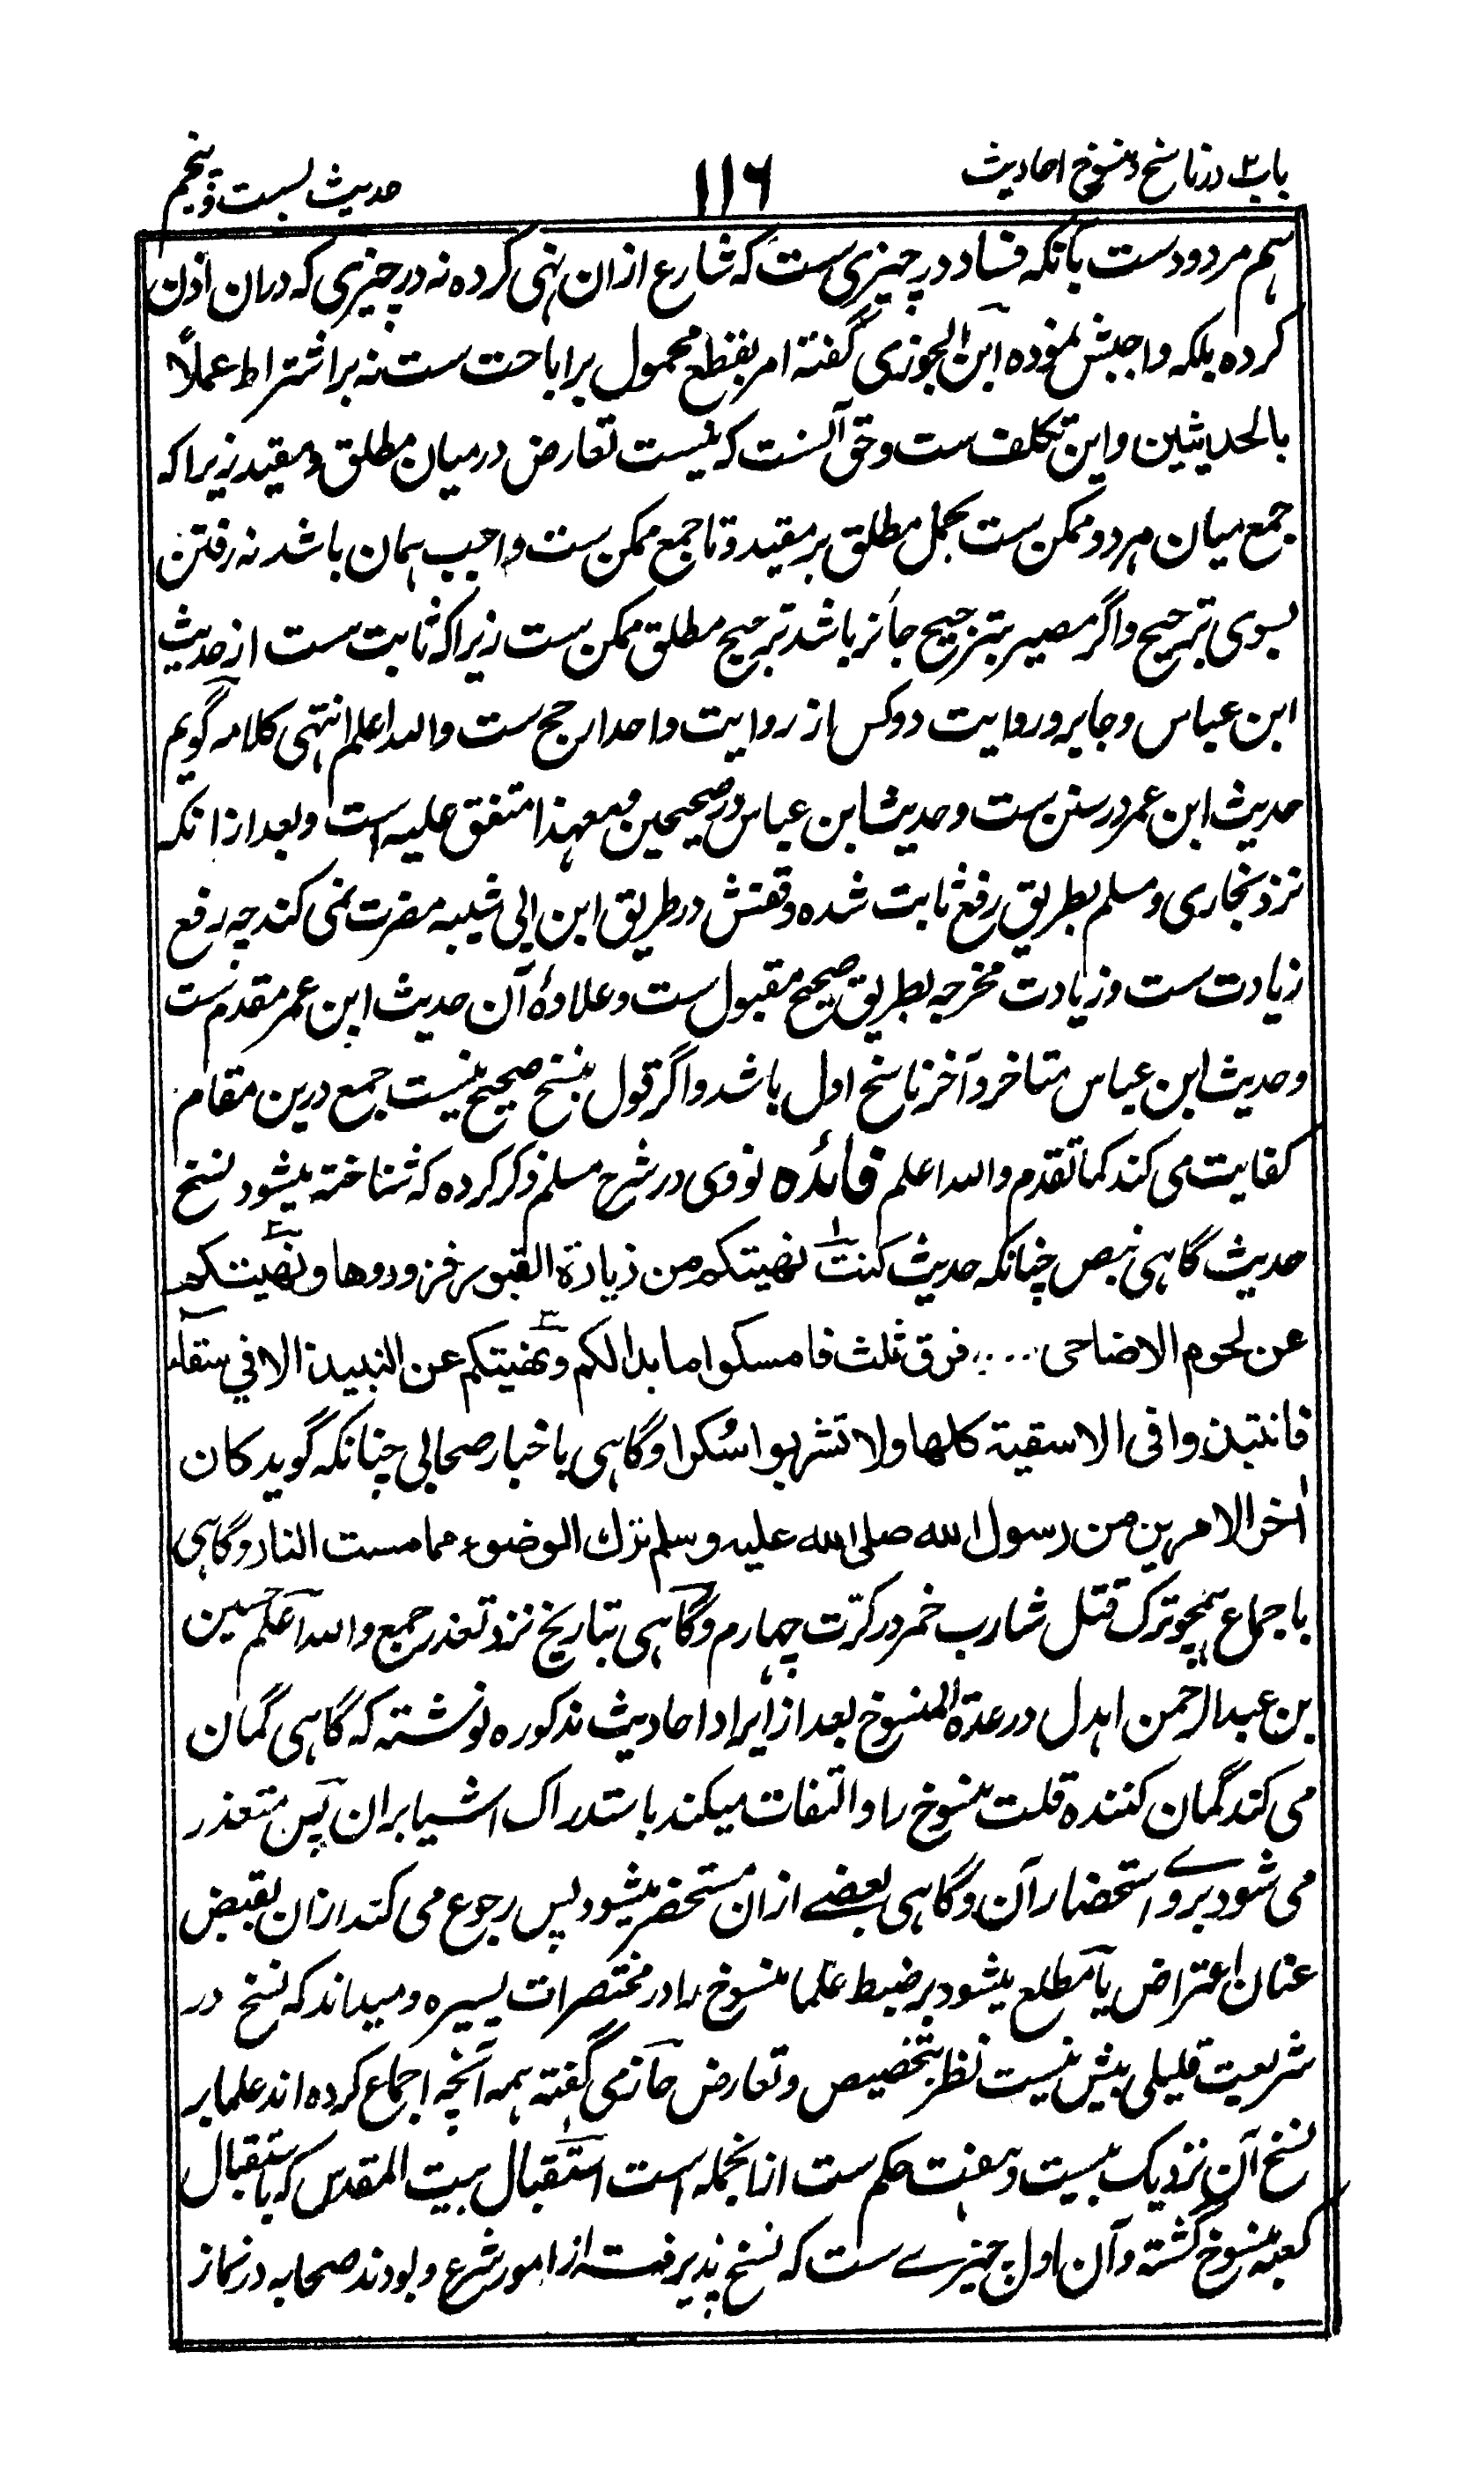 باب۲ در ناسخ و منسوخ احادیث
۱۱۶
حدیث بست و پنجم
ہم مردودست بآنکہ فساد در چیزی ست کہ شارع ازان نہی کردہ نہ در چیزی کہ دران اذن
کردہ بلکہ واجبش نمودہ ابن الجوزی گفتہ امر بقطع محمول بر اباحت ست نہ بر اشتراط عملاً
بالحدیثین و این تکلف ست و حق آنست کہ نیست تعارض درمیان مطلق و مقید زیراکہ
جمع میان ہردو ممکن ست بحمل مطلق بر مقید و تا جمع ممکن ست واجب ہمان باشد نہ رفتن
بسوی ترجیح و اگر مصیر بترجیح جائز باشد ترجیح مطلق ممکن ست زیراکہ ثابت ست از حدیث
ابن عباس و جابر و روایت دو کس از روایت واحد ارجح ست واللہ اعلم انتہی کلامہ گویم
حدیث ابن عمر در سنن ست و حدیث ابن عباس در صحیحین و معہذا متفق علیہ است و بعد ازانکہ
نزد بخاری و مسلم بطریق رفع ثابت شدہ وقفش در طریق ابن ابی شیبہ مضرت نمی کند چہ رفع
زیادت ست و زیادت مخرجہ بطریق صحیح مقبول ست و علاوۂ آن حدیث ابن عمر مقدم ست
و حدیث ابن عباس متاخر و آخر ناسخ اول باشد و اگر قول بنسخ صحیح نیست جمع درین مقام
کفایت می کند کما تقدم واللہ اعلم فائدہ نووی در شرح مسلم ذکر کردہ کہ شناختہ میشود نسخ
حدیث گاہی بنص چنانکہ حدیث کنت نھیتکم من زیارۃ القبور فزوروھا و نھیتکم
عن لحوم الاضاحی .... فوق ثلث فامسکوا ما بدا لکم و نھیتکم عن النبیذ الا فی سقاء
فانتبذوا فی الاسقیۃ کلھا ولا تشربوا سُکرا و گاہی باخبار صحابی چنانکہ گوید کان
اٰخر الامرین من رسول اللہ صلی اللہ علیہ وسلم ترک الوضوء مما مست النار و گاہی
باجماع ہمچو ترک قتل شارب خمر در کرّت چہارم و گاہی بتاریخ نزد تعذر جمع واللہ اعلم حسین
بن عبدالرحمن اہدل در عدۃ المنسوخ بعد از ایراد احادیث مذکورہ نوشتہ کہ گاہی گمان
می کند گمان کنندہ قلت منسوخ را و التفات میکند باستدراک اشیا بران پس متعذر
می شود بروے استحضار آن و گاہی بعضے ازان مستحضر میشود پس رجوع می کند ازان بقبض
عنان اعتراض یا مطلع میشود بر ضبط علما منسوخ را در مختصرات یسیرہ و میداند کہ نسخ در
شریعت قلیلی بیش نیست نظر بتخصیص و تعارض حازمی گفتہ ہمہ آنچہ اجماع کردہ اند علما بر
نسخ آن نزدیک بیست و ہفت حکم ست ازانجملہ است استقبال بیت المقدس کہ باستقبال
کعبہ منسوخ گشتہ و آن اول چیزے ست کہ نسخ پذیرفت از امور شرع و بودند صحابہ در نماز